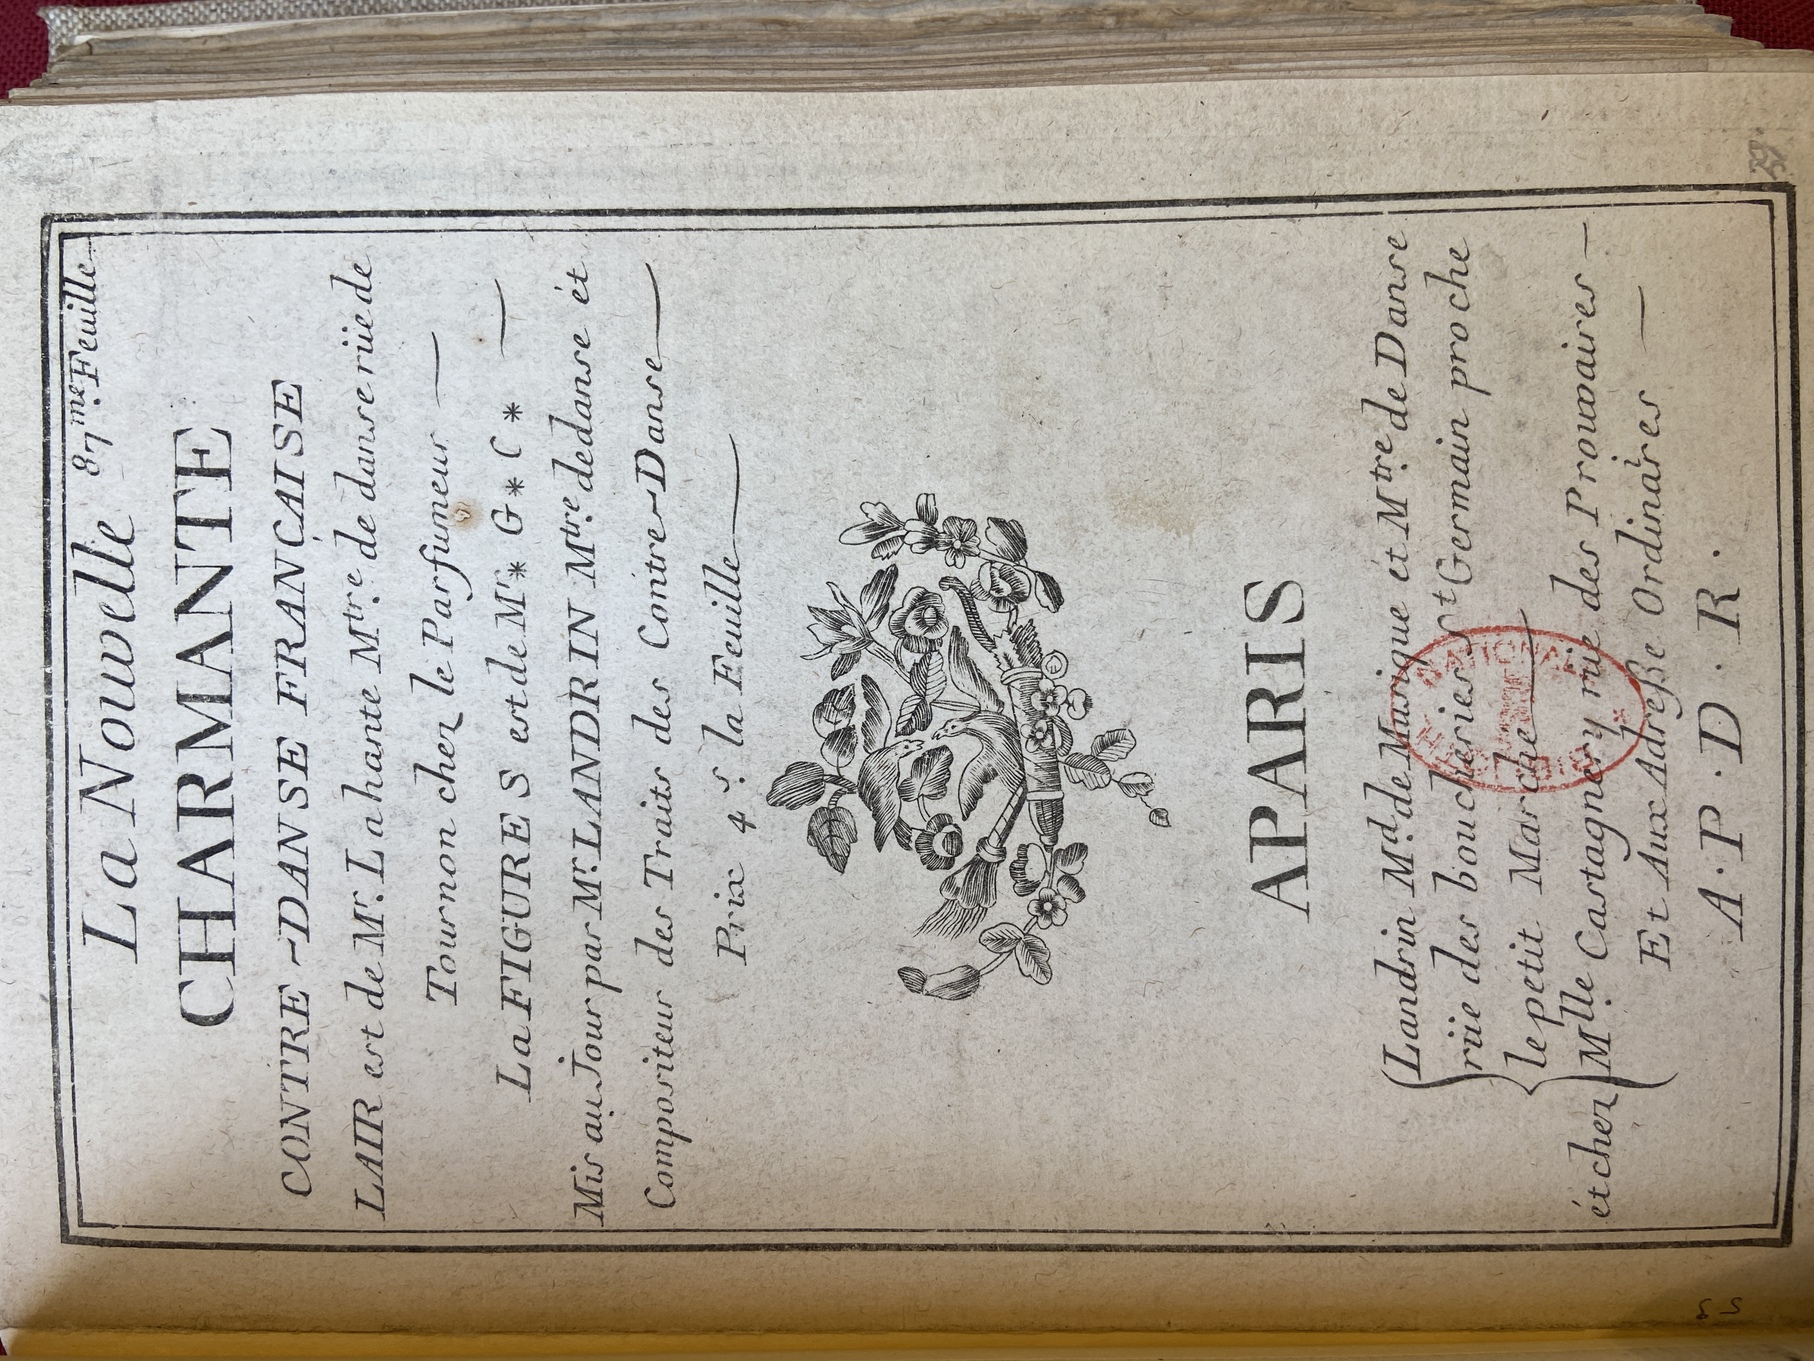 La Nouvelle 87.me Feuille
CHARMANTE
CONTRE~DANSE FRANÇAISE
LAIR est de Mr. Lahante Mtre. de danse rüe de
Tournon chez le Parfumeur
La FIGURE S est de Mr* G * C *
Mis au Jour par Mr. LANDRIN Mtre. de danse ét
Compositeur des Traits des Contre~Danse
Prix 4 s. la Feuille
APARIS
Landrin Md. de Musique ét Mtre. de Danse
rüe des boucheries St Germain proche
le petit Marché
ét chez Mlle. Castagnery rüe des Prouvaires
Et Aux Adresse Ordinaires
A . P . D . R .